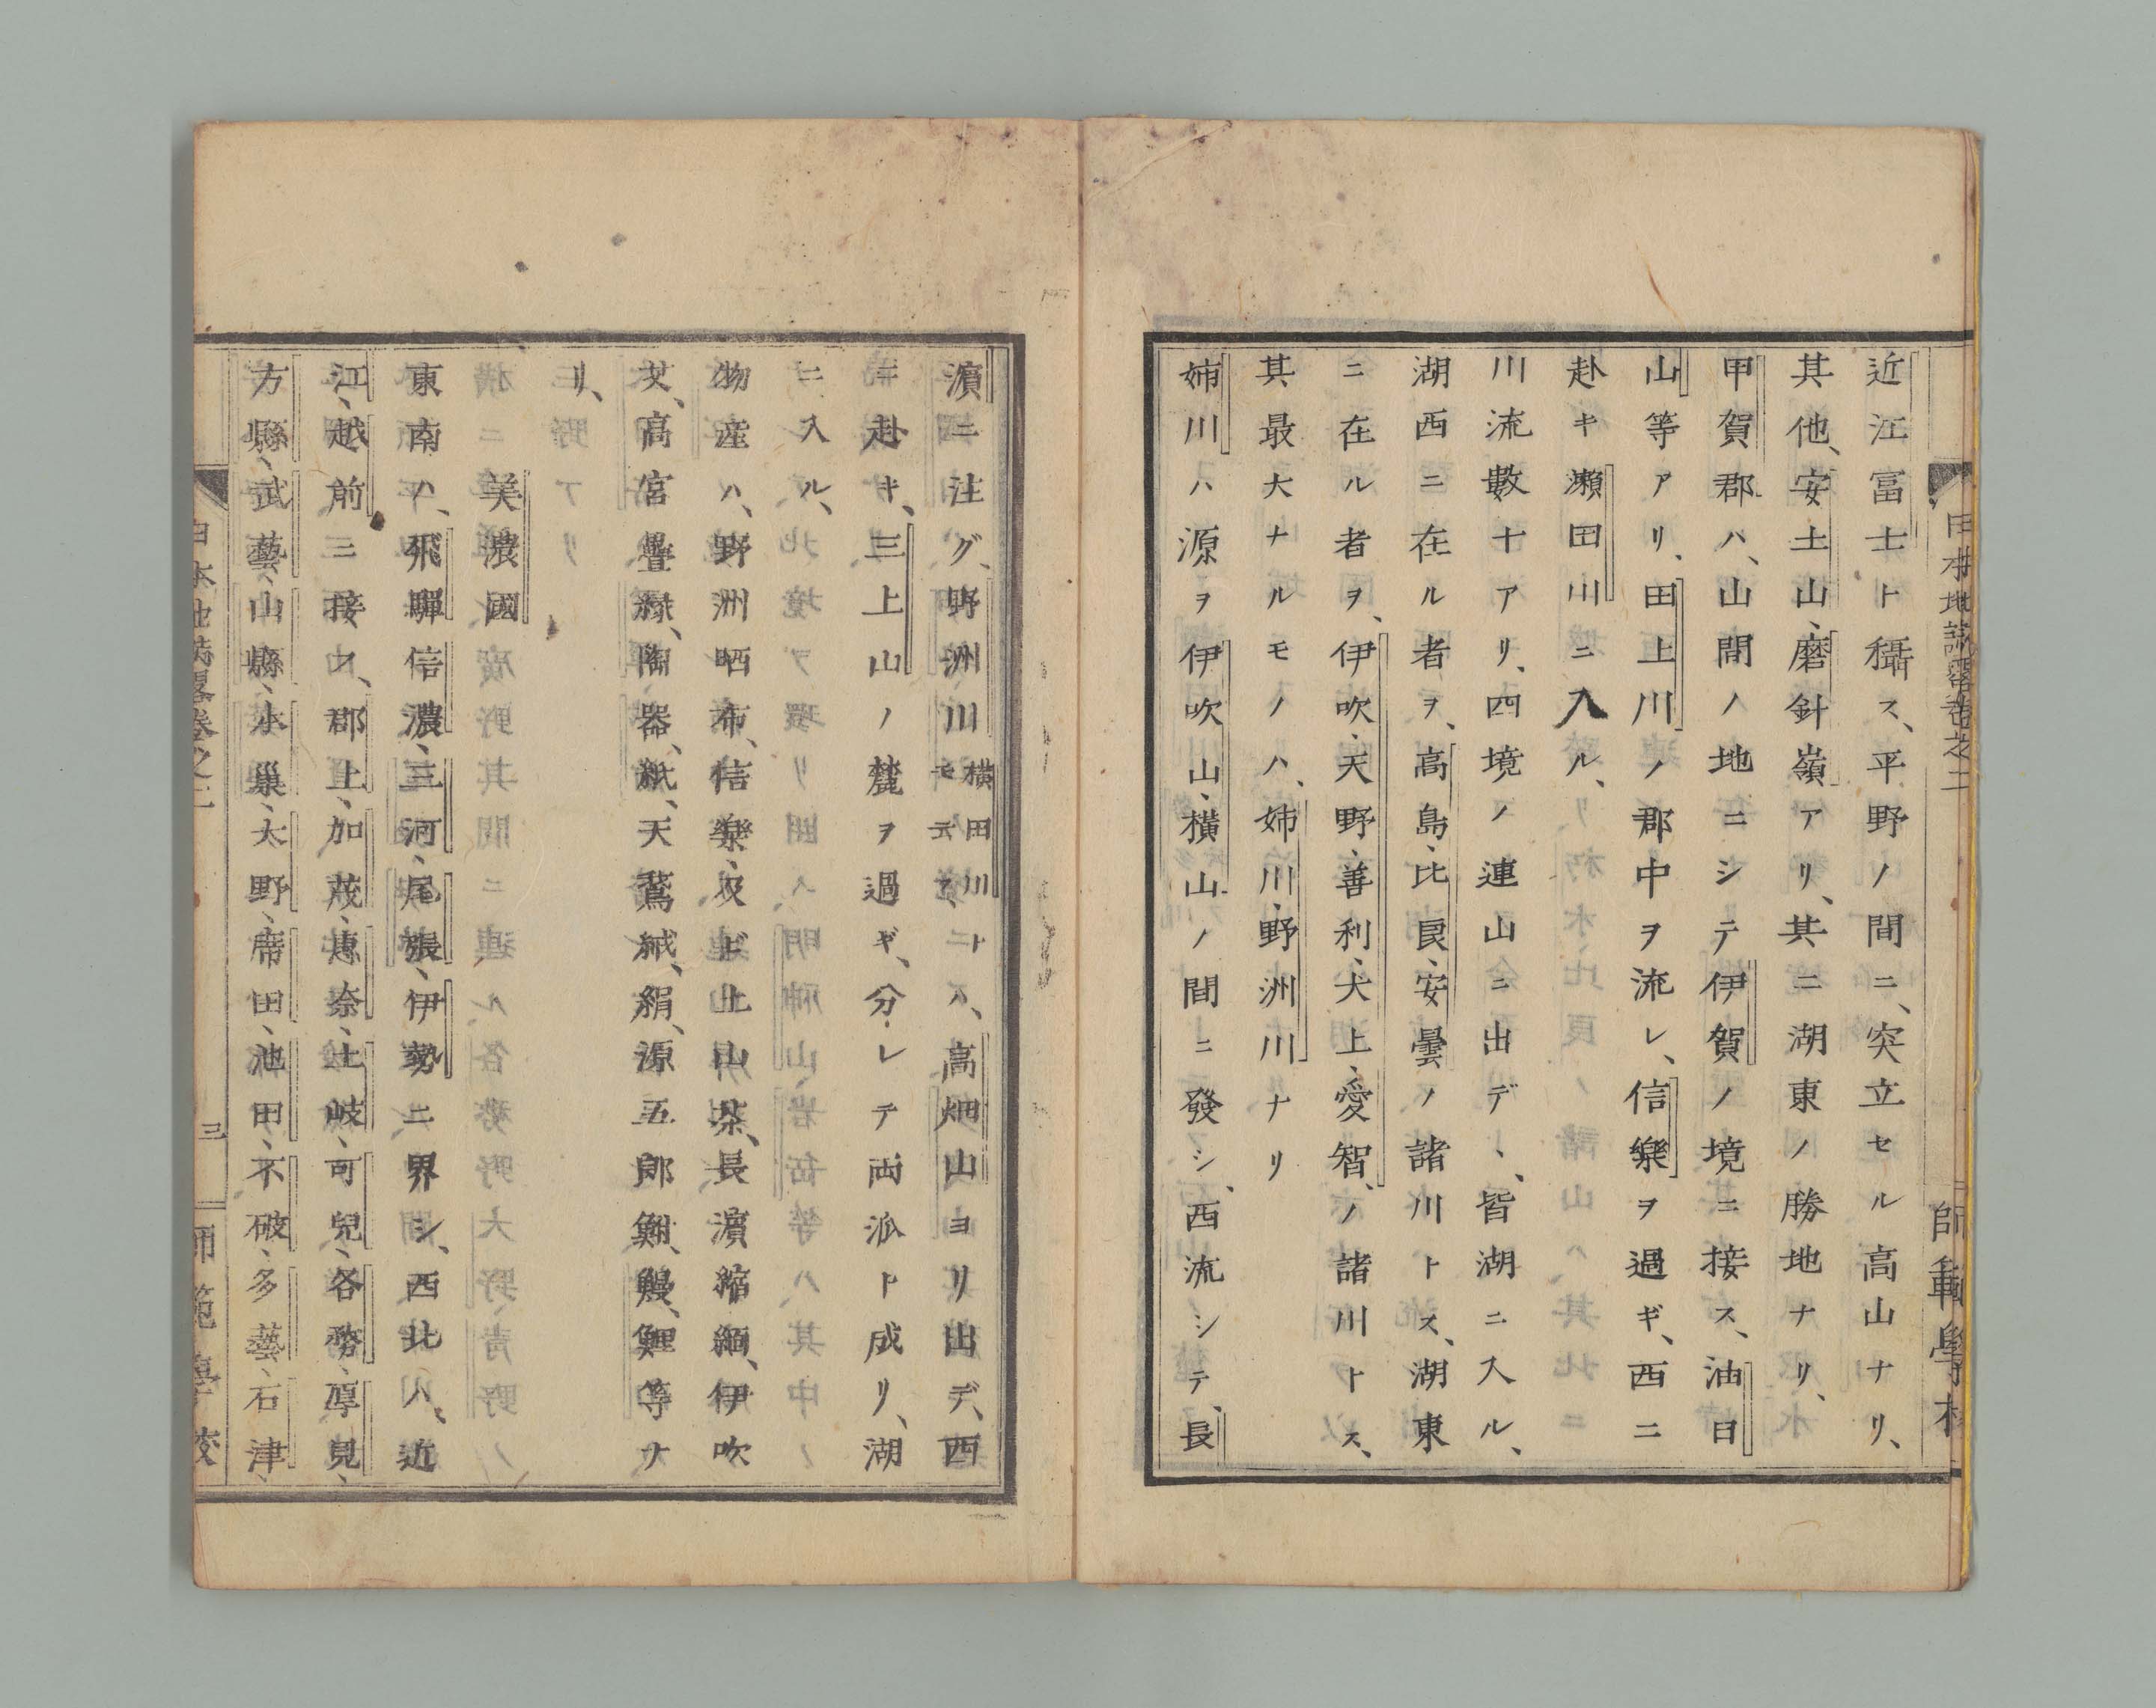 日本地誌略卷之二
師範學校
近江富士ト稱ス、平野ノ間ニ、突立セル高山ナリ、
其他、安土山、磨針嶺、アリ、其ニ湖東ノ勝地ナリ、
甲賀郡ハ、山間ノ地ニシテ伊賀ノ境ニ接ス、油日
山等アリ、田上川ノ郡中ヲ流レ、信樂ヲ過ギ、西ニ
赴キ瀬田川ニ入ル、
川流數十アリ、四境ノ連山ニ出デヽ、皆湖ニ入ル、
湖西ニ在ル者ヲ、高島、比良、安曇ノ諸川トス、湖東
ニ在ル者ヲ、伊吹、天野、善利、犬上、愛智、ノ諸川トス、
其最大ナルモノハ、姉川、野洲川ナリ
姉川ハ源ヲ伊吹山、横山ノ間ニ發シ、西流シテ、長
濵ニ注グ、野洲川横田川トモ云フハ、高畑山ヨリ出デ、西
ニ赴キ、三上山ノ麓ヲ過ギ、分レテ両派ト成リ、湖
ニ入ル、
物產ハ、野洲晒布、信樂、及ビ土山茶、長濵縮緬、伊吹
艾、高宮疊緣、陶器、紙、天鵞絨、絹、源五郎鮒、鰻、鯉等ナ
リ、
美濃國
東南ハ、飛驒信濃、三河、尾張、伊勢ニ界シ、西北ハ、近
江、越前ニ接ス、郡上、加茂、惠奈、土岐、可兒、各務、厚見、
方縣、武藝、山縣、本巢、大野、席田、池田、不破、多藝、石津、
日本地誌略卷之二
三
師範學校